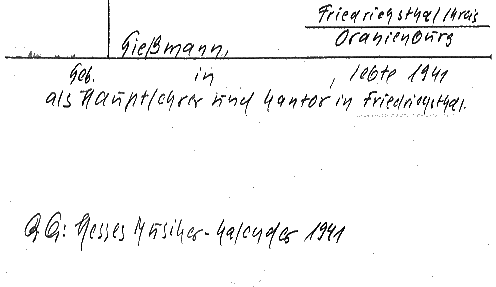 Friedrichsthal/Kreis
Oranienburg
Gießmann,
Geb. in , lebte 1941
als Hauptlehrer und Kantor in Friedrichsthal.
Qu.: Hesses Musiker-Kalender 1941